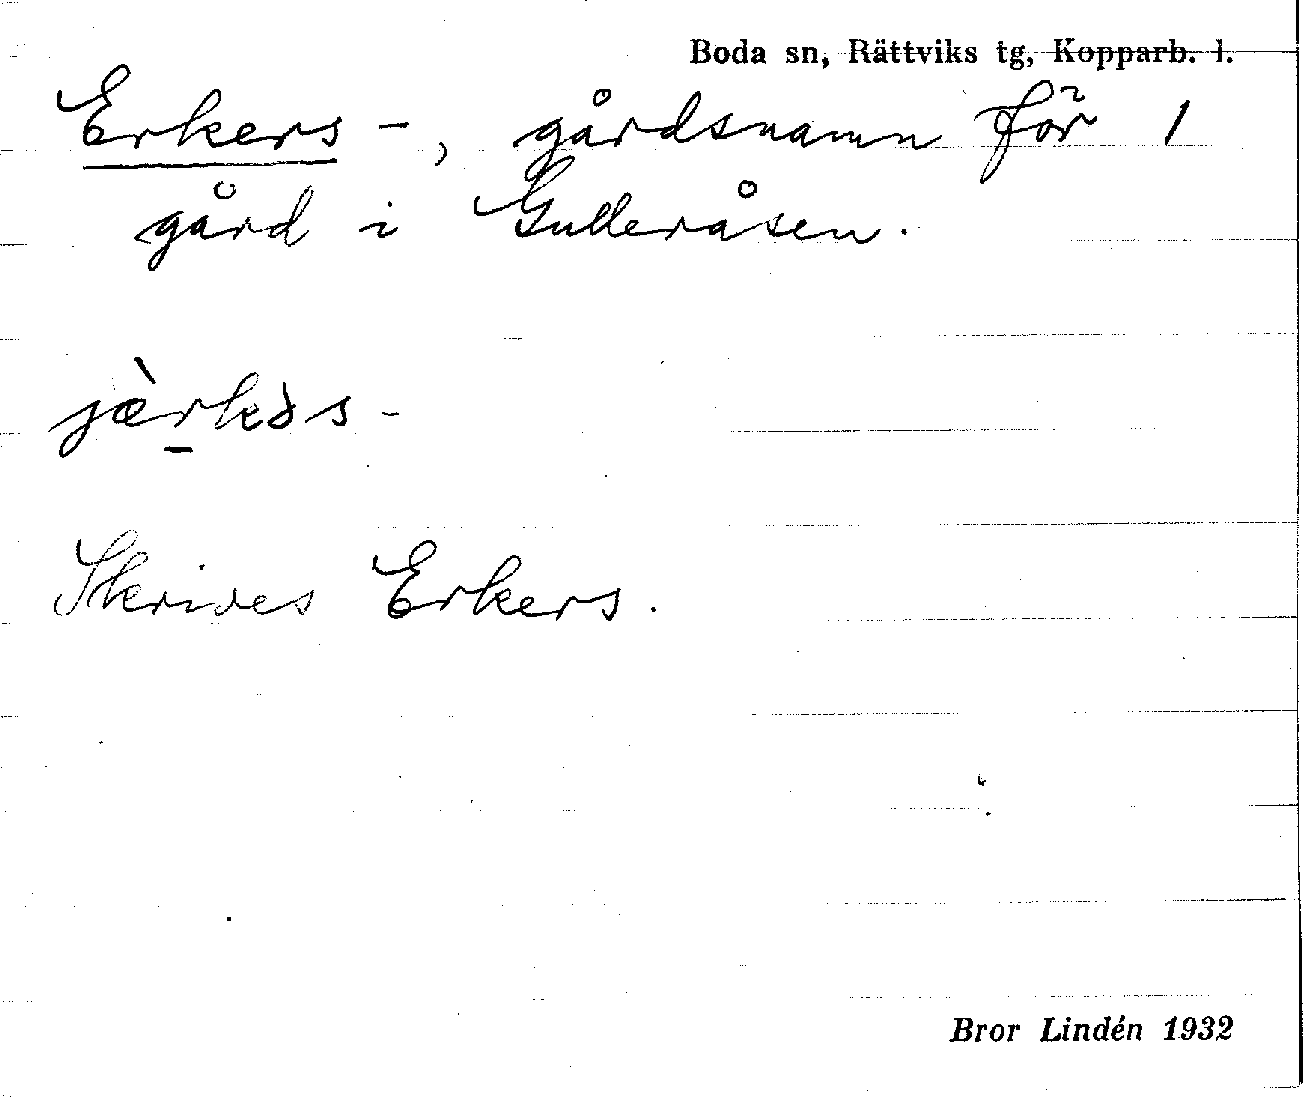 Boda sn, Rättviks tg, Kopparb. l.
Erkers -, gårdsnamn för 1
gård i Gulleråsen.
jæ̀rkəs -
Skrives Erkers.
Bror Lindén 1932